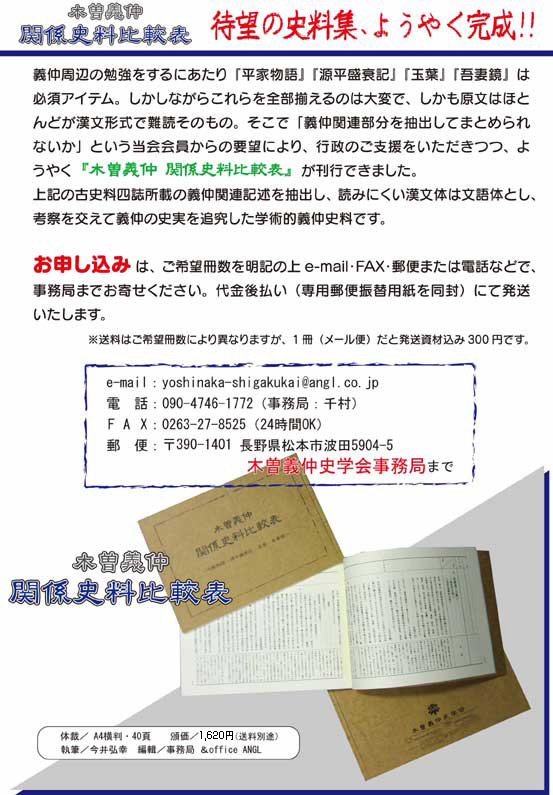 木曽義仲
関係史料比較表
待望の史料集、ようやく完成!!
義仲周辺の勉強をするにあたり『平家物語』『源平盛衰記』『玉葉』『吾妻鏡』は
必須アイテム。しかしながらこれらを全部揃えるのは大変で、しかも原文はほと
んどが漢文形式で難読そのもの。そこで「義仲関連部分を抽出してまとめられ
ないか」という当会会員からの要望により、行政のご支援をいただきつつ、よ
うやく『木曽義仲 関係史料比較表』が刊行できました。
上記の古史料四誌所載の義仲関連記述を抽出し、読みにくい漢文体は文語体とし、
考察を交えて義仲の史実を追究した学術的義仲史料です。
お申し込み は、ご希望冊数を明記の上 e-mail・FAX・郵便または電話などで、
事務局までお寄せください。代金後払い（専用郵便振替用紙を同封）にて発送
いたします。
※送料はご希望冊数により異なりますが、1冊（メール便）だと発送資材込み300円です。
e-mail：yoshinaka-shigakukai@angl.co.jp
電　話：090-4746-1772（事務局：千村）
F A X：0263-27-8525（24時間OK）
郵　便：〒390-1401 長野県松本市波田5904-5
木曽義仲史学会事務局まで
木曽義仲
関係史料比較表
木曽義仲
関係史料比較表
木曽義仲史学会
体裁／ A4横判・40頁　頒価／1,620円(送料別途)
執筆／今井弘幸　編輯／事務局 &office ANGL